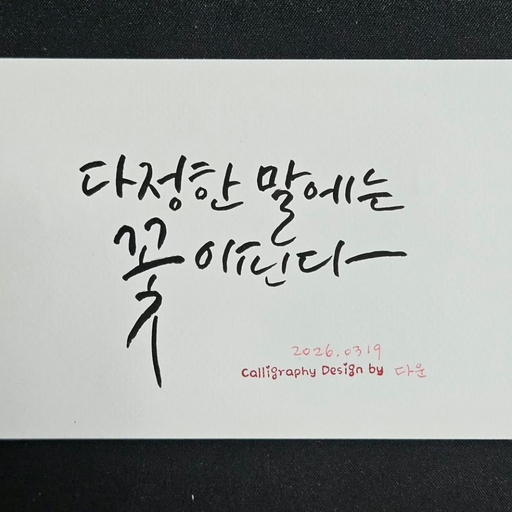 다정한 말에는
꽃이핀다
2026.03.19
Calligraphy Design by 다운